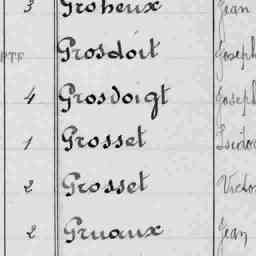 3 Groheux Jean
PTF Grosdoit Joseph
4 Grosdoigt Joseph
1 Grosset Isidor
2 Grosset Victo
2 Gruaux Jean